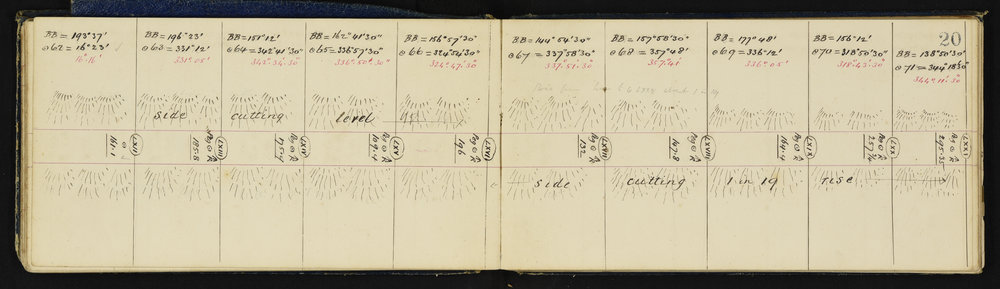 20
BB = 193°37'
⊙62 = 16°23'
16°16'
BB = 196°23'
⊙63 = 331°12'
331°05'
BB = 151°12'
⊙64 = 342°41'30"
342°34'30"
BB = 162°41'30"
⊙65 = 336°57'30"
336°50'30"
BB = 156°57'30"
⊙66 = 324°54'30"
324°47'30"
BB = 144°54'30"
⊙67 = 337°58'30"
337°51'30"
BB = 157°58'30"
⊙68 = 357°48'
357°41'
BB = 177°48'
⊙69 = 336°12'
336°05'
BB = 156°12'
⊙70 = 318°50'30"
318°43'30"
BB = 138°50'30"
⊙71 = 344°18'30"
344°11'30"
side cutting level
LXII
161.1
LXIII
Peg @ R
185.8
LXIV
Peg @ R
175.4
LXV
Peg @ R
169.4
LXVI
Peg @ R
196
LXVII
Peg @ R
232
LXVIII
Peg @ R
147.8
LXIX
Peg @ R
164.4
LXX
Peg @ R
LXXI
Peg @ R
295.35
side cutting 1 in 19 rise